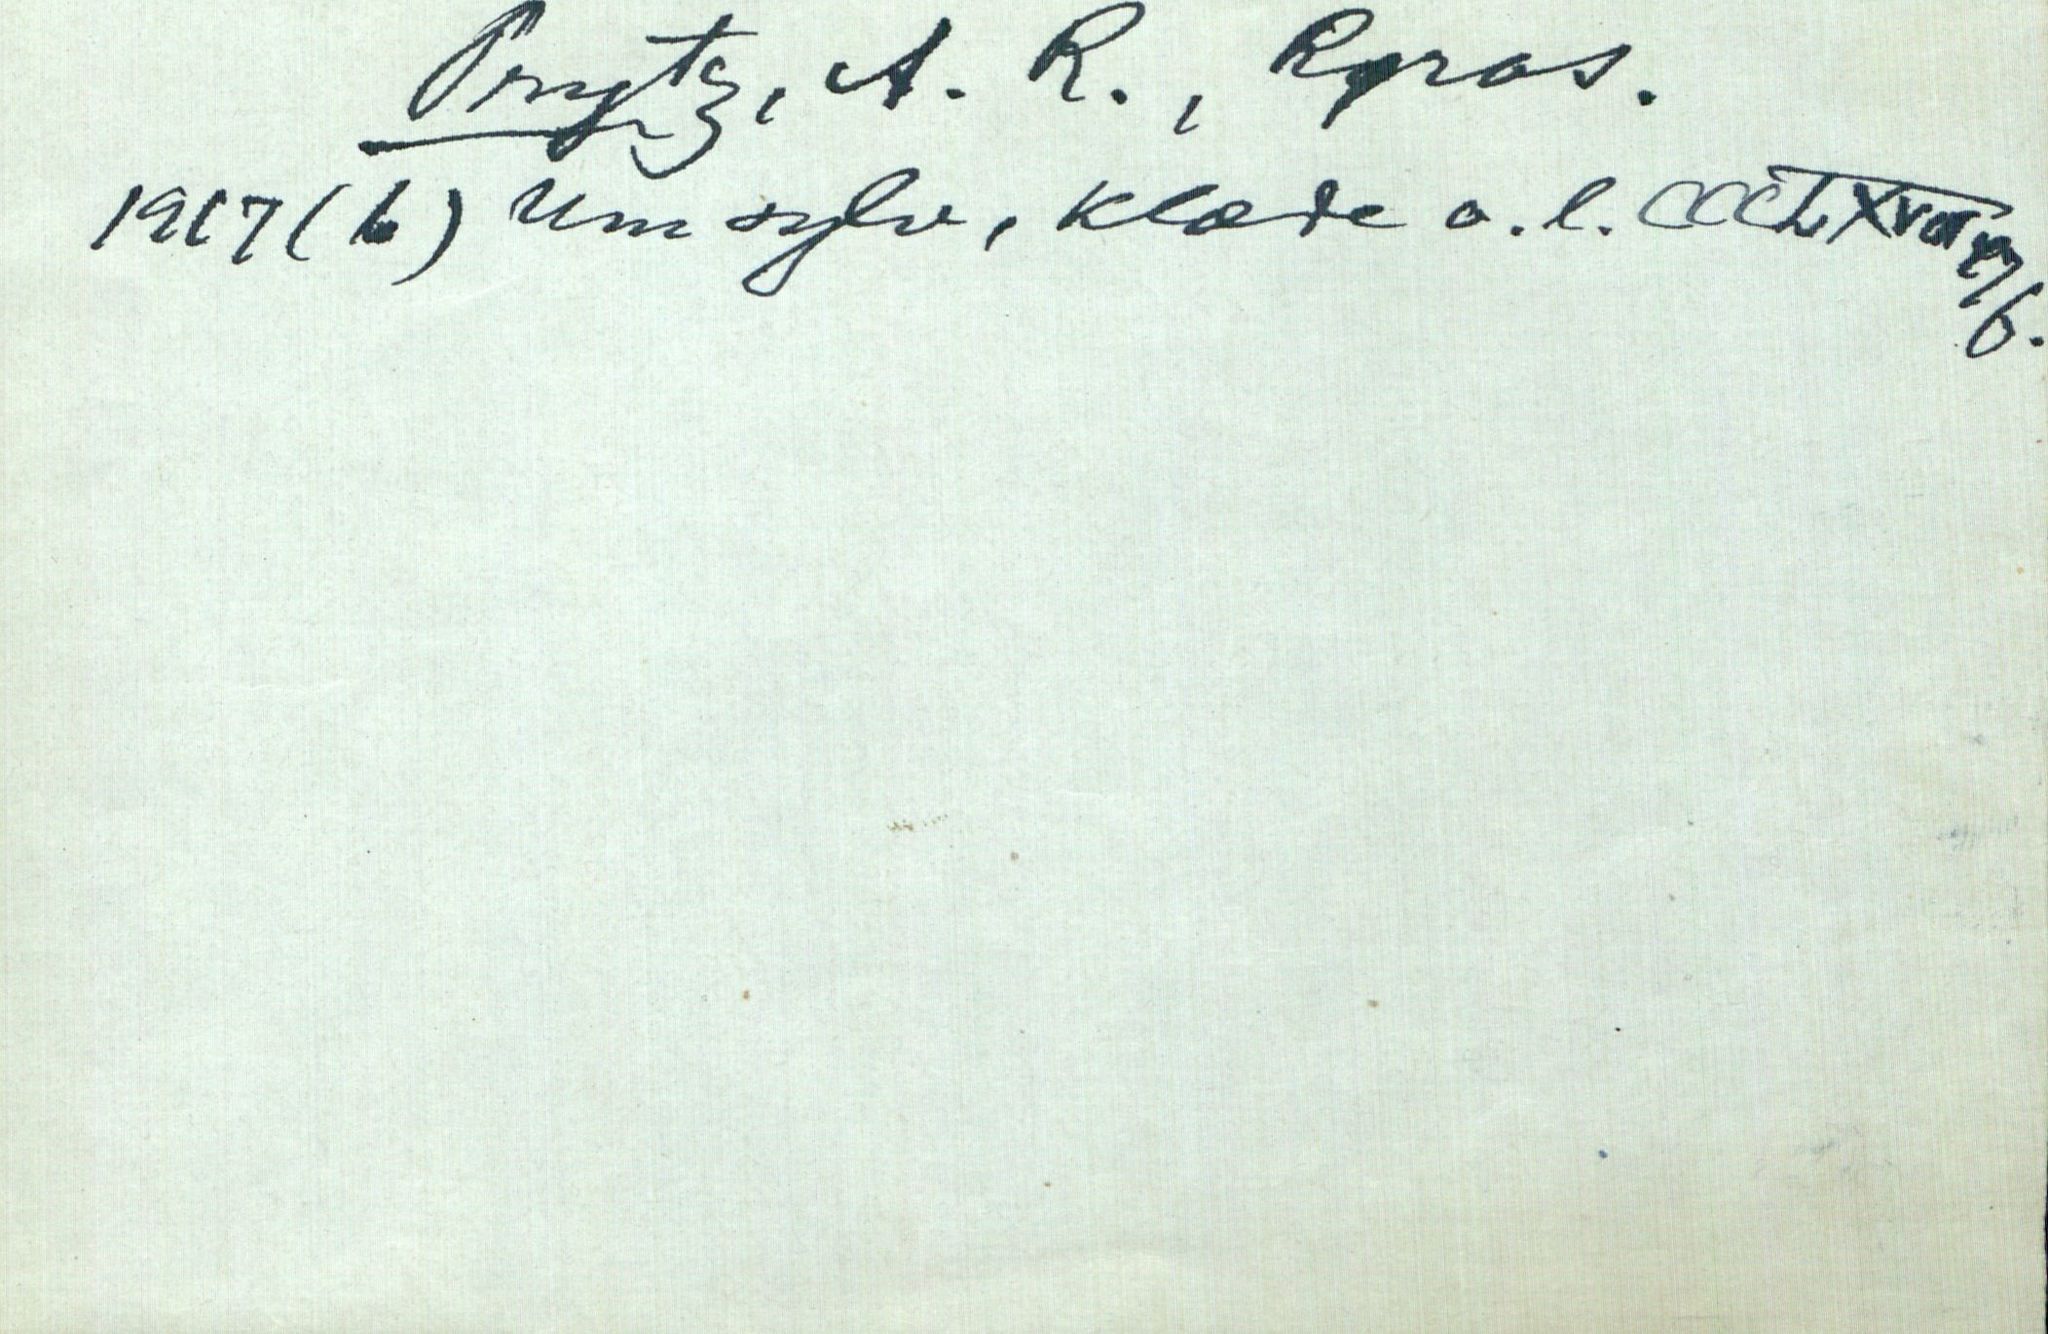 Prytz, A. R., Røros.
1917 (b) Um sylv, klæde o. l. CCCLXVII 176.